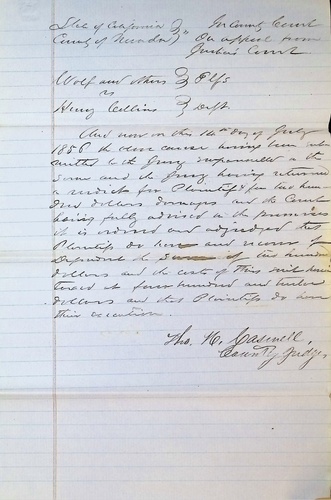 State of California } In County Court
County of Nevada } ss On appeal from
Justices Court
Wolf and others } Plfs
vs
Henry Collins } Deft
And now on this 16th day of July
1856 the above cause having been sub
mitted to the Jury impannelled in the
same and the Jury having returned
a verdict for Plaintiffs for two hun
dred dollars damages and the Court
being fully advised in the premises
it is ordered and adjudged that
Plaintiffs do have and recover of
Defendant the sum of two hundred
dollars and the costs of this suit here
taxed at four hundred and
dollars and that Plaintiffs do have
their execution.
Tho. H. Caswell,
County Judge